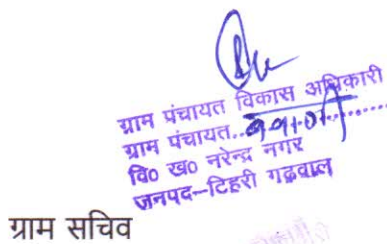 ग्राम पंचायत विकास अधिकारी
ग्राम पंचायत..
वि० ख० नरेन्द्र नगर
जनपद–टिहरी गढ़वाल
ग्राम सचिव